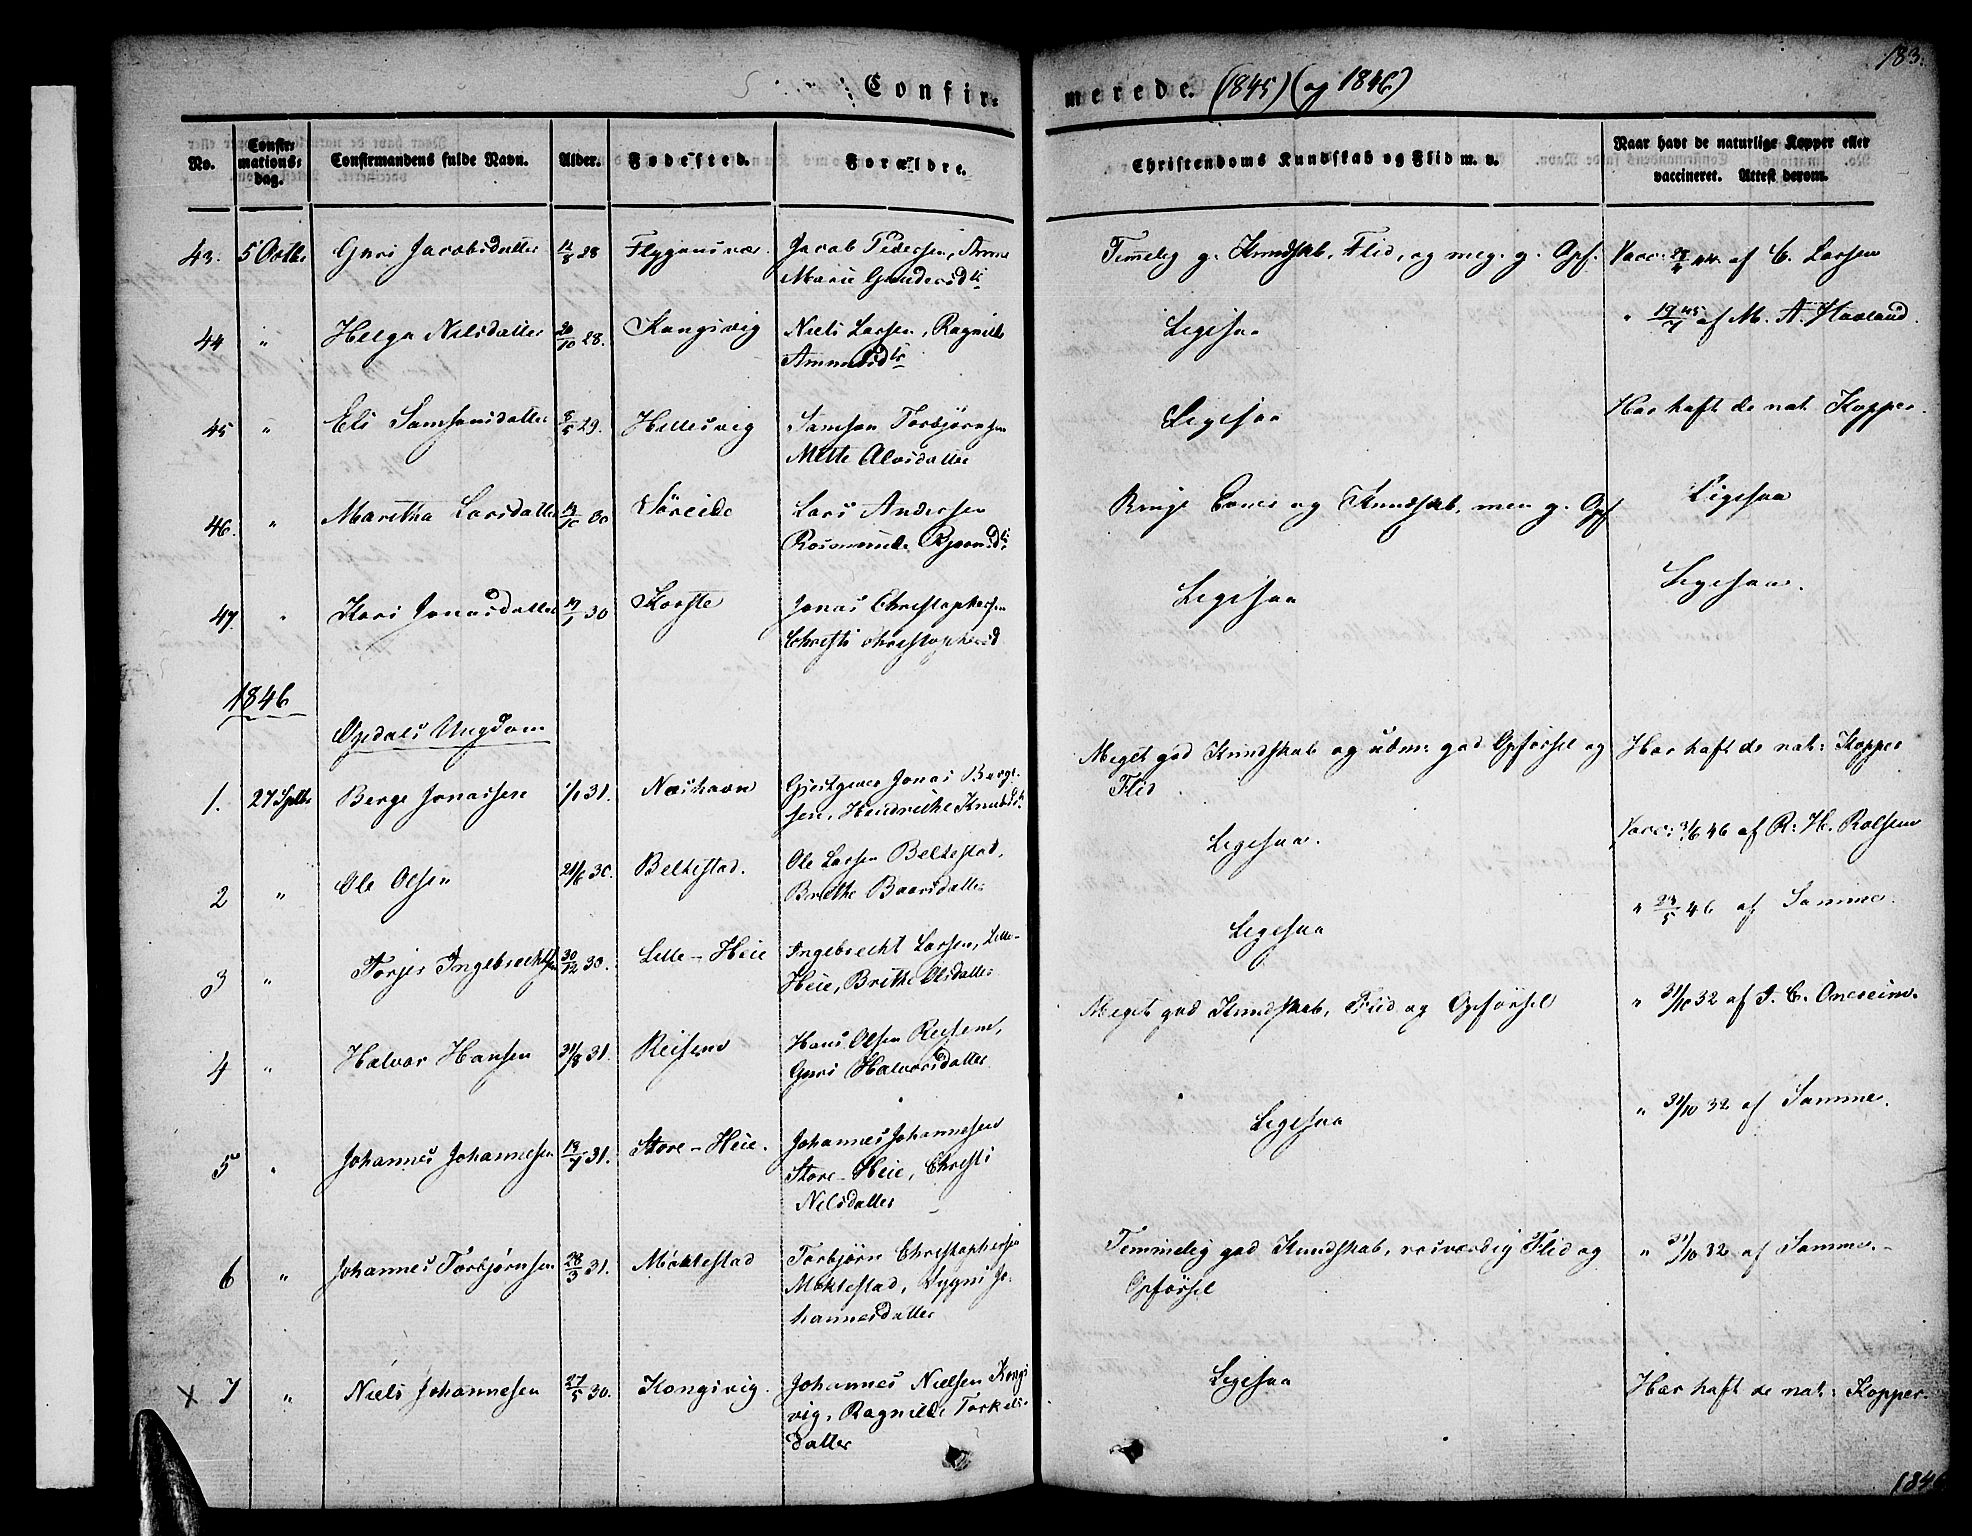 183.
Confirmerede. (1845) (og 1846)
No.
Confir-
mations-
dag.
Confirmandens fulde Navn.
Alder.
Fødested.
Forældre.
Christendoms Kundskab og Flid m. v.
Naar havt de naturlige Kopper eller
vaccineret. Attest derom.
43. 5 Octbr Guri Jacobsdatter 28 Flygansvær Jacob Pedersen, Anne
Marie Gundersdtr
Temmelig g. Kundskab, Flid, og meg. g. Opf. Vacc: 44 af C. Larsen
44 " Helga Nilsdatter 20/10 28. Kongsvig Niels Larsen, Ragnilde
Amundsdtr
Ligesaa " 19/7 45 af M. A. Havland.
45 " Eli Samsonsdatter 8/5 29. Hillesvig Samson Torbjørnsen
Mette Alvsdatter
Ligesaa Har haft de nat. Kopper.
46. " Maritha Larsdatter 30 Søreide Lars Andersen
Rosamunde Bjørnsdtr
Ringe Evner og Kundskab, men g. Opf Ligesaa
47. " Kari Jonasdatter 30 Jonas Christophersen
Christi Christophersd
Ligesaa Ligesaa.
1846
Opdals Ungdom
1. 27 Septbr Berge Jonassen 1/1 31. Næshavn Gjestgiver Jonas Berge-
sen, Hendrikke Knudsd.
Meget god Kundskab og udm: god Opførsel og
Flid
Har haft de nat: Kopper
2 " Ole Olsen 30. Beltestad. Ole Larsen Beltestad,
Brithe Baarsdatter
Ligesaa. Vacc: 3/6 46 af R. H. Rolfsen
3 " Torjer Ingebrechtsen 30/12 30. Lille-Heie Ingebrecht Larsen, Lille-
Heie, Brithe Olsdatter
Ligesaa " 24/5 46 af Samme.
4 " Halvor Hansen 31/8 31. Reisend Hans Olsen Reisend,
Guri Halvorsdatter
Meget god Kundskab, Flid og Opførsel " 31/10 32 af I. C. Oneseim.
5 " Johannes Johannesen 19/7 31. Store-Heie. Johannes Johannesen
Store-Heie, Christi
Nelsdatter
Ligesaa " 31/10 32 af Samme.
6 " Johannes Torbjørnsen 28/3 31. Møklestad Torbjørn Christophersen
Møklestad, Sygni Jo-
hannesdatter
Temmelig god Kundskab, rosværdig Flid og
Opførsel
" 31/10 32 af Samme.
x 7 " Niels Johannesen 27/5 30. Kongsvig. Johannes Nielsen Kongs
vig, Ragnilde Torkels-
datter
Ligesaa Har haft de nat: Kopper.
1846